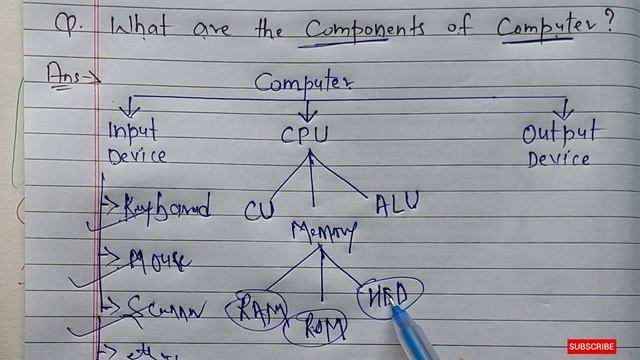 Q. What are the Components of Computer?
Ans→ Computer
Input Device
CPU
Output Device
→ Keyboard
CU
Memory
ALU
→ Mouse
→ Scanner
RAM
ROM
HDD
SUBSCRIBE